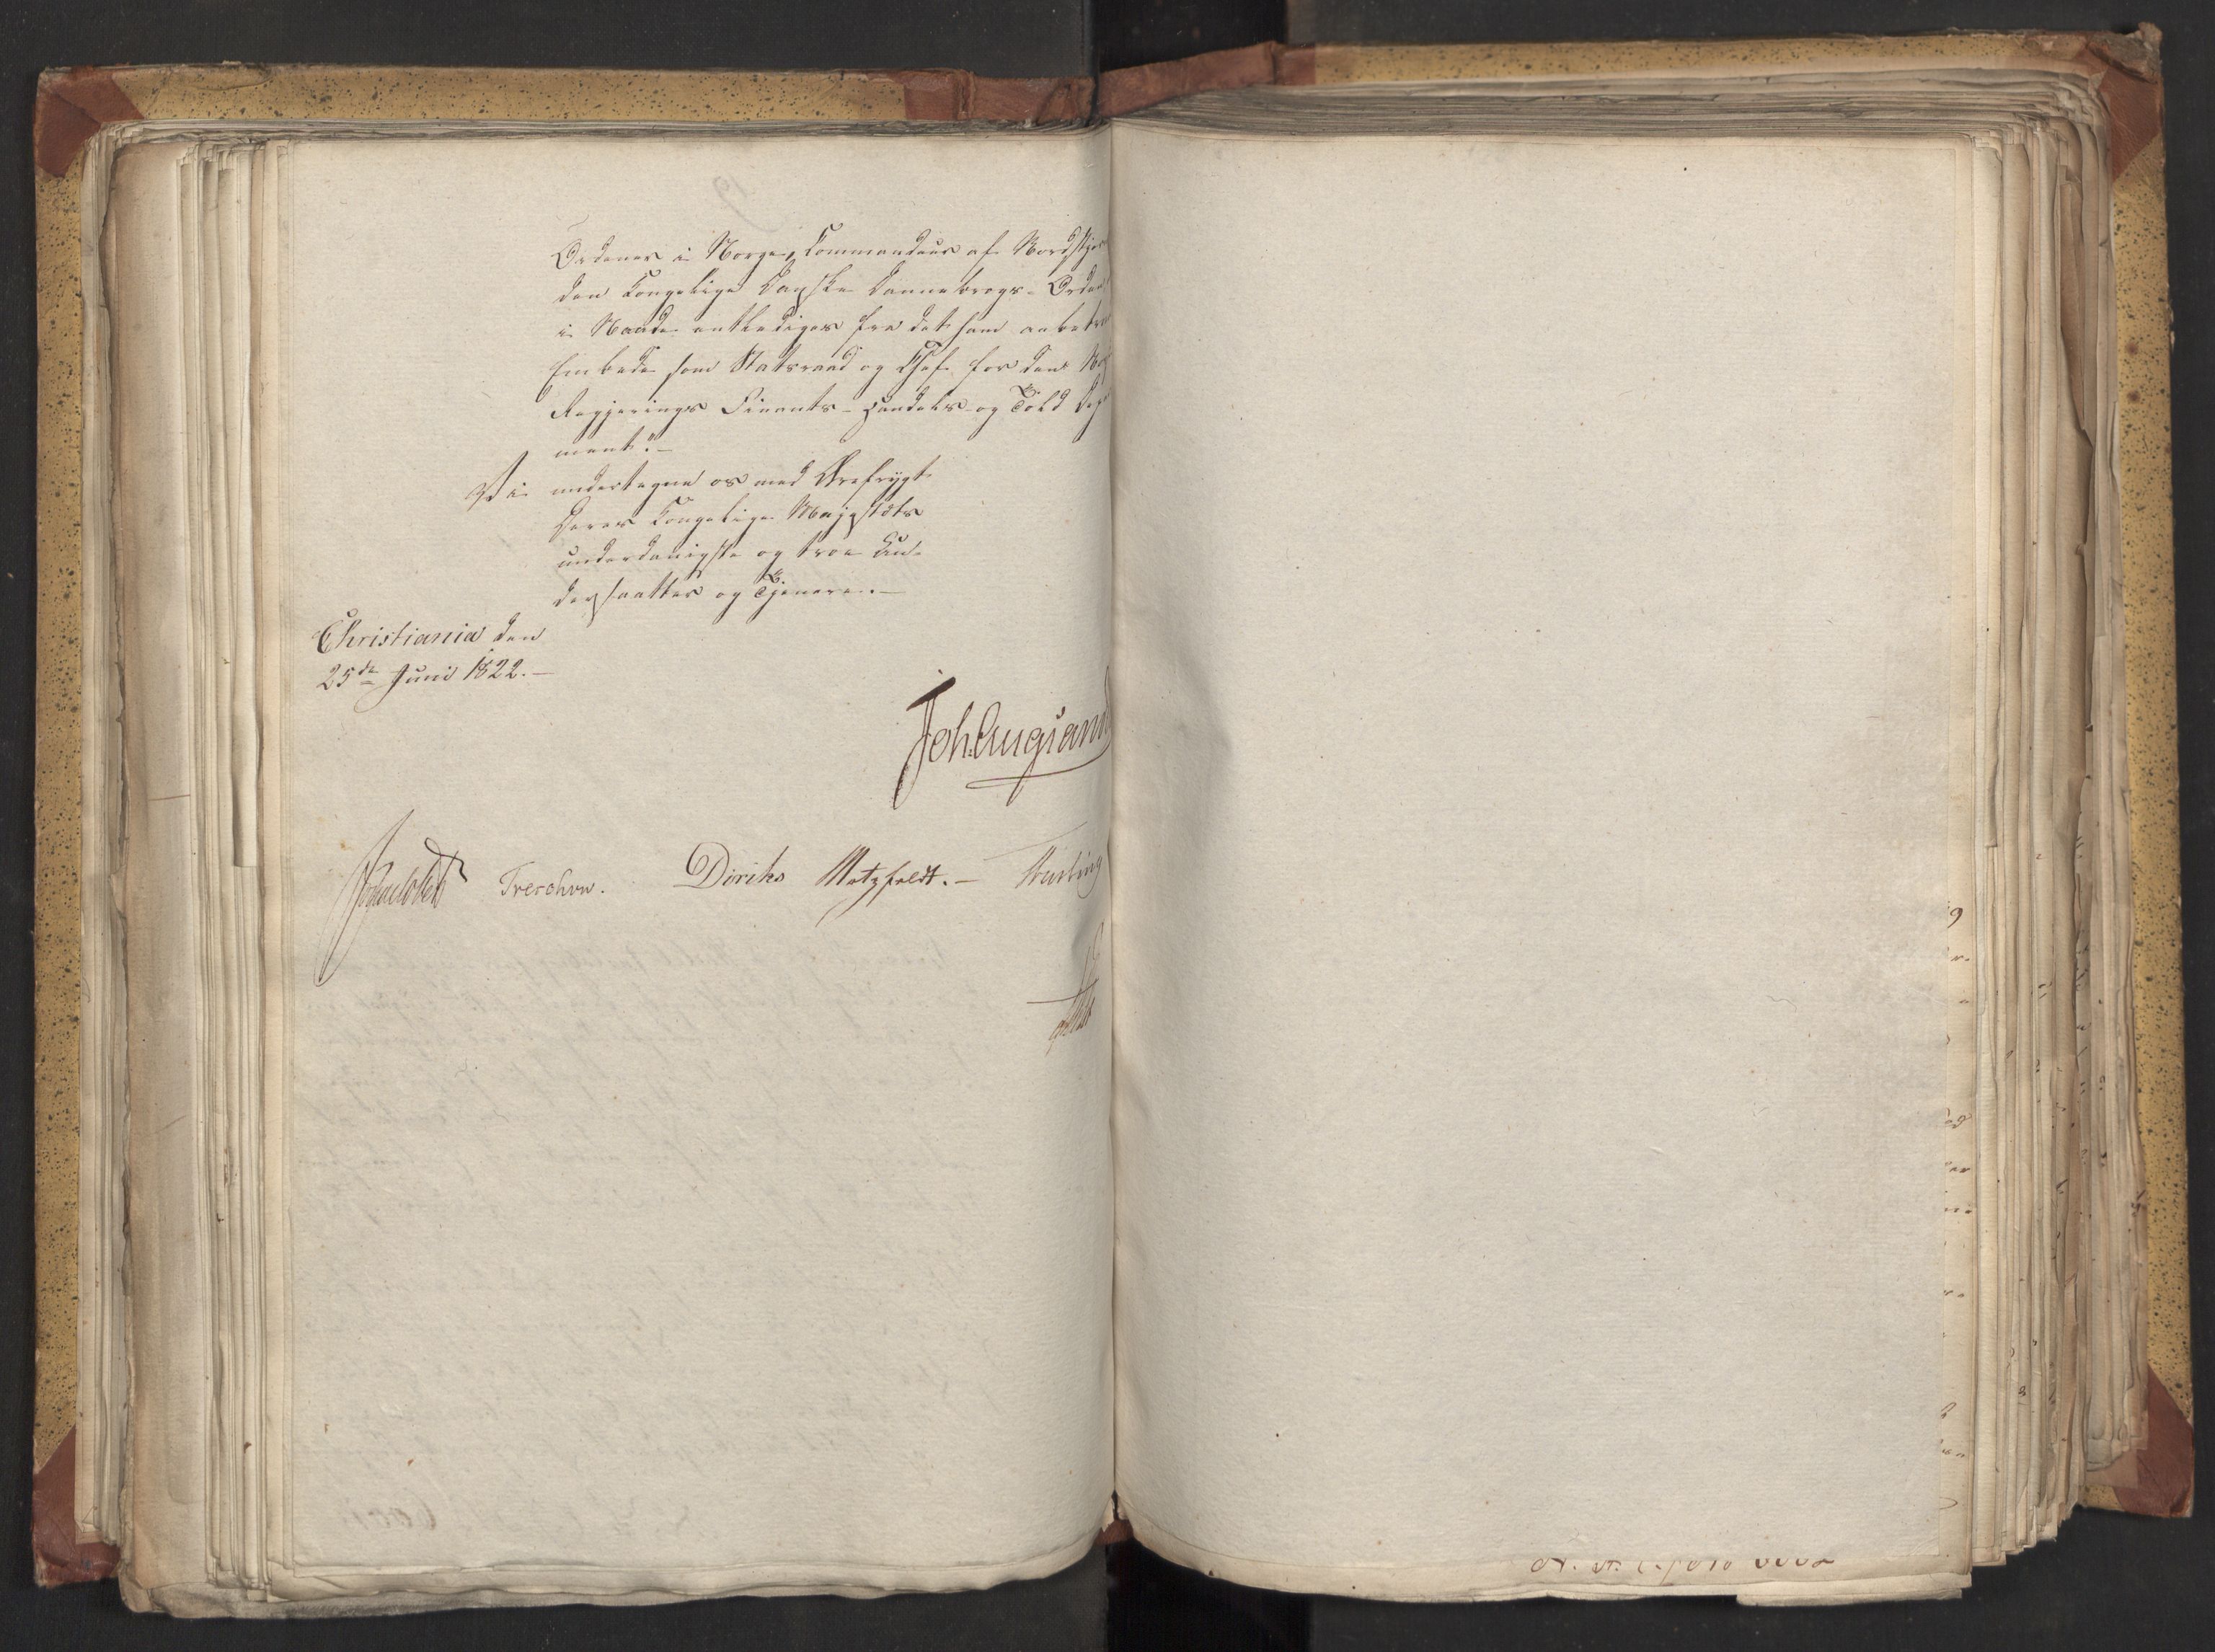 Ordener i Norge, Commandeur af Nordstjer
den Kongelige Danske Dannebrogs-Orden,
i Naade entlediges fra det ham anbetro
Embede som Statsraad og Chef for den Nor
Regjerings Finants- Handels- og Told Depar
ment."—
Vi undertegne os med Ærefrygt
Deres Kongelige Majestæts
underdanigste og troe Un-
dersaatter og Tjenere.—
Christiania den
25de Juni 1822.—
Joh: Aug: Sand
Treschow. Diriks Motzfeldt.—